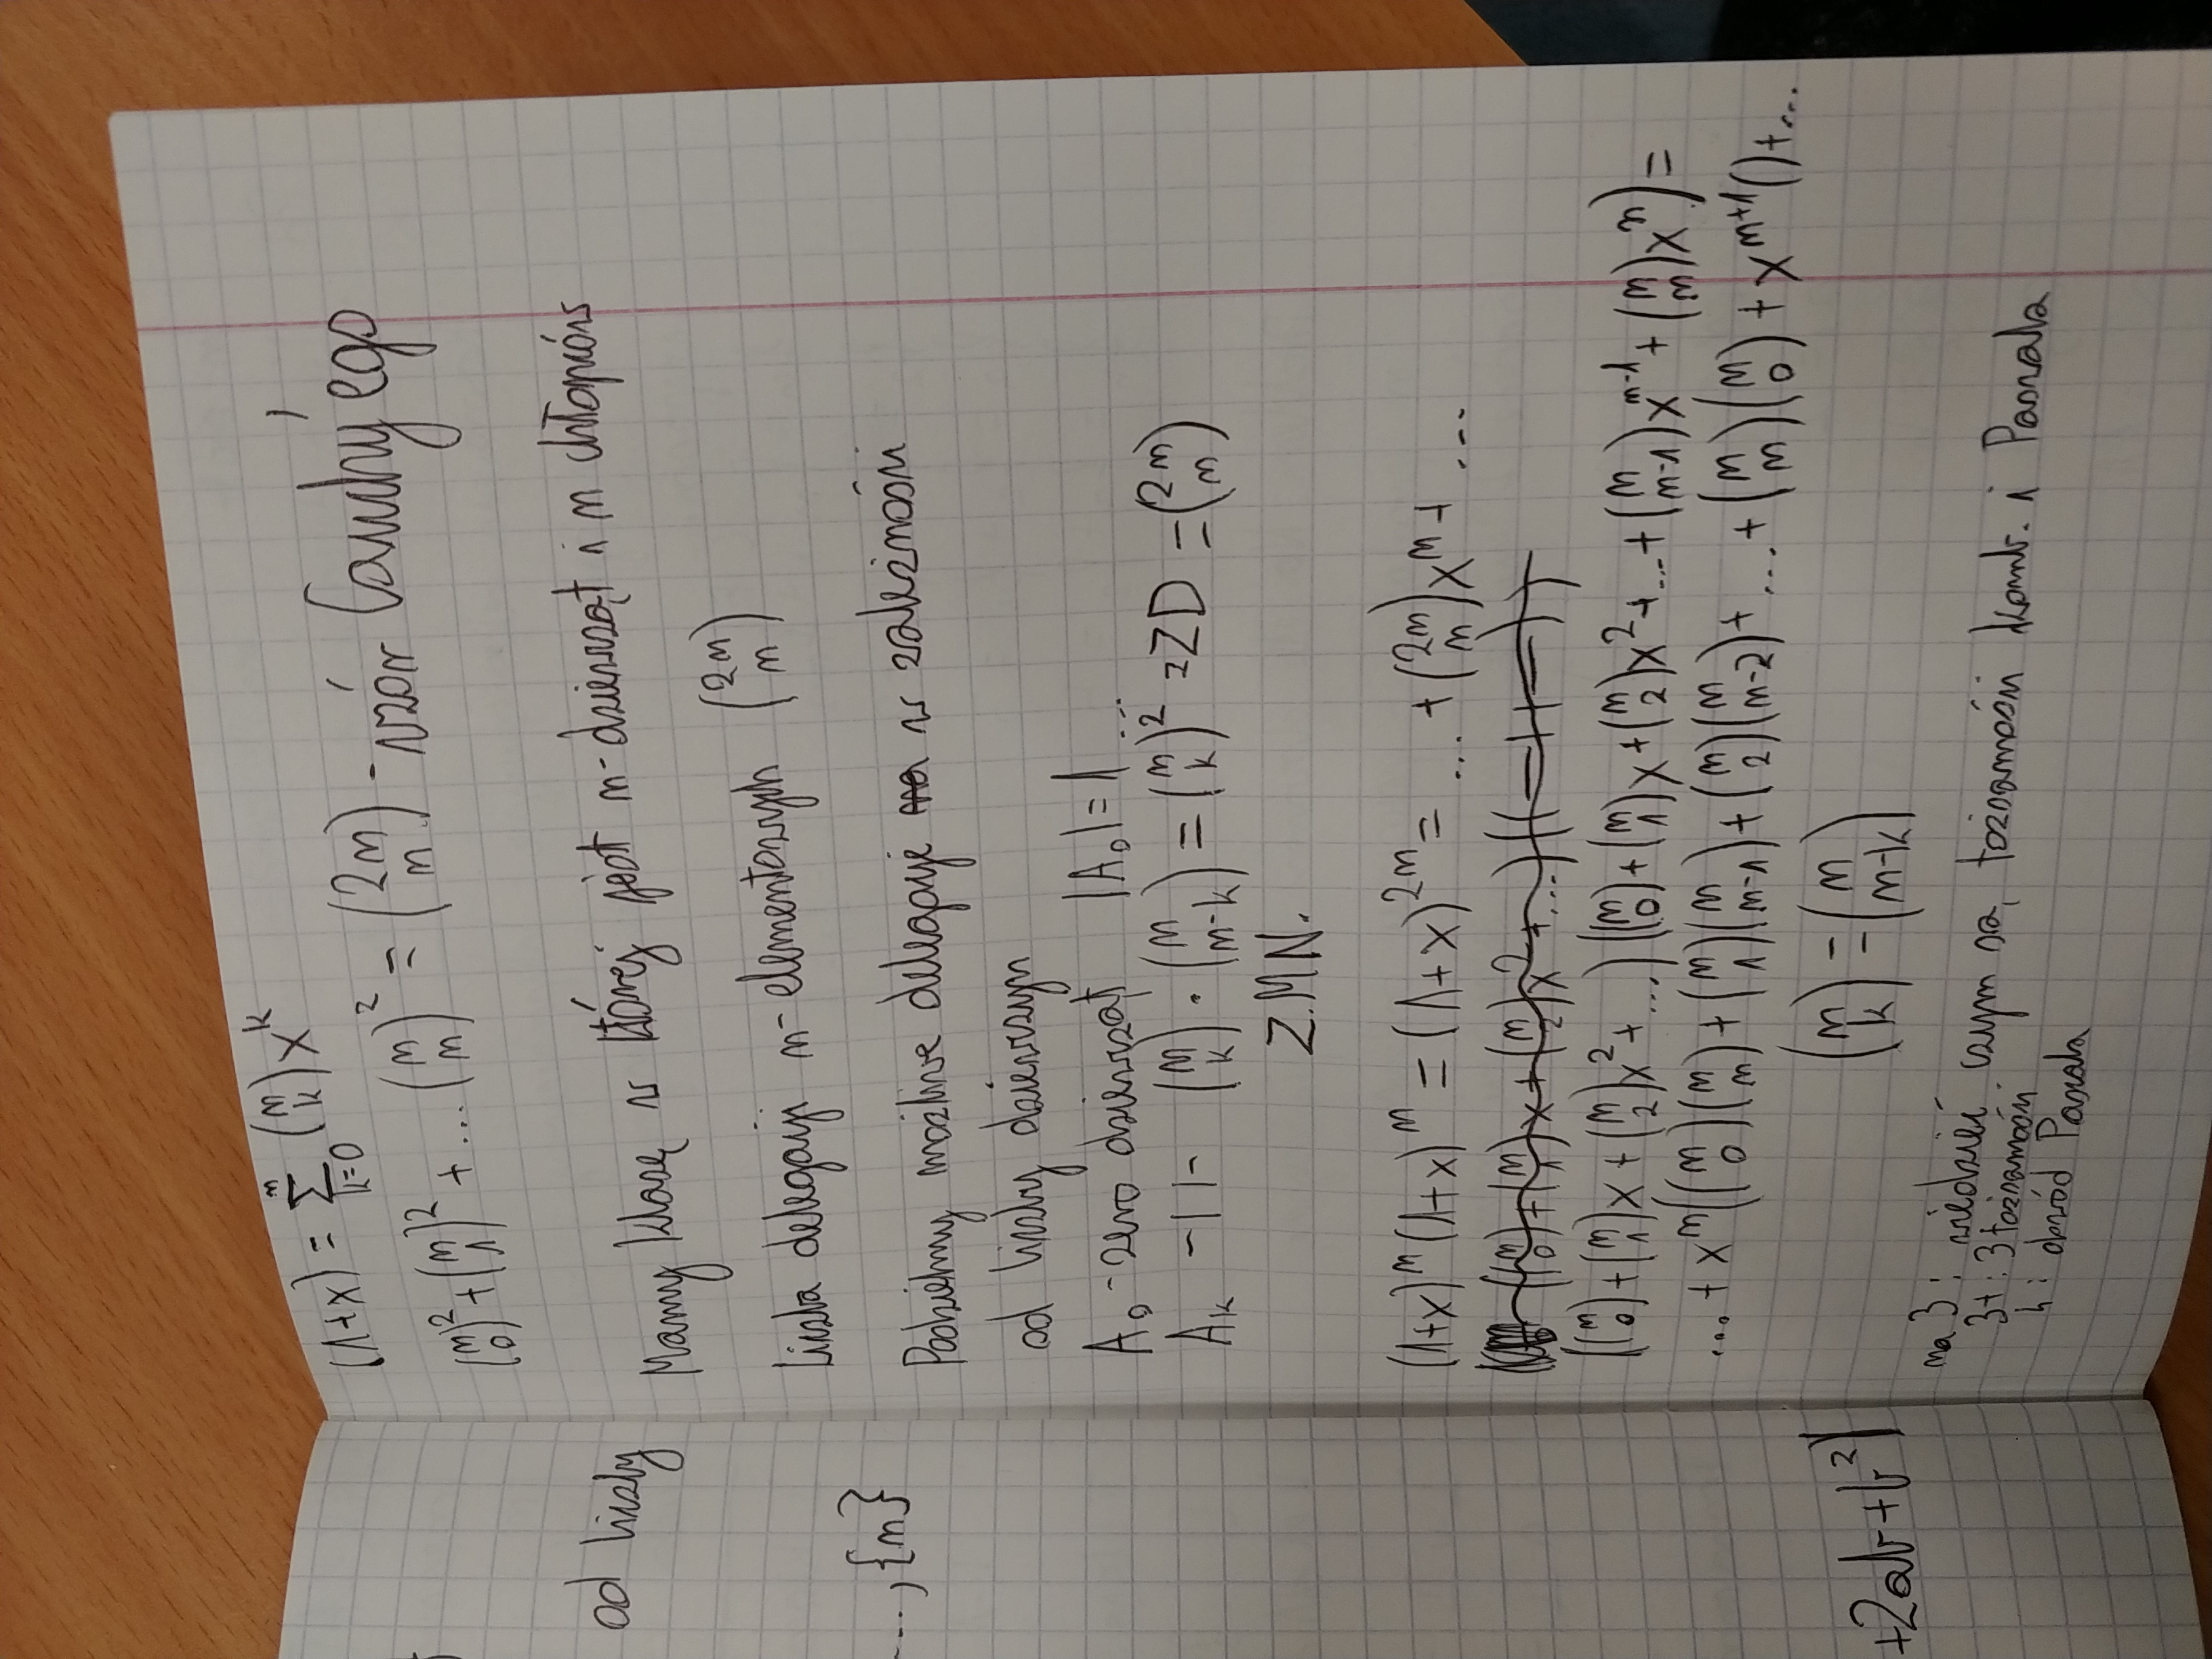 od liczby
..., {n}
+2ab+b²)
(1+x) = n ∑ k=0 (n k) x^k
(n 0)² + (n 1)² + ... (n n)² = (2n n) - wzór Cauchy'ego
Mamy klasę w której jest n-dziewcząt i n chłopców
Liczba delegacji n-elementowych (2n n)
Podzielmy możliwe delegacje na w zależności
od liczby dziewczyn
A₀ - zero dziewcząt |A₀| = 1 ...
Aₖ -||- (n k) · (n n-k) = (n k)² = ZD = (2n n)
Z.MN.
(1+x)^n (1+x)^n = (1+x)^2n = ... + (2n n) x^n + ...
((n 0) + (n 1)x + (n 2)x² + ...) ((-||-))
((n 0) + (n 1)x + (n 2)x² + ...) ((n 0) + (n 1)x + (n 2)x² + ... + (n n-1)x^n-1 + (n n)x^n) =
... + x^n((n 0)(n n) + (n 1)(n n-1) + (n 2)(n n-2) + ... + (n n)(n 0) + x^n+1 () + ...
(n k) = (n n-k)
na 3 : wiedzieć czym są tożsamości komb. i Pascala
3+ : 3 tożsamości
4 : dowód Pascala